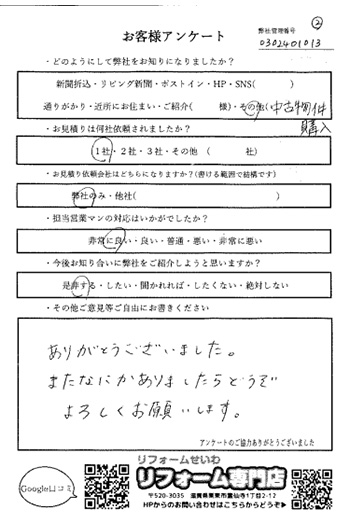 ②
お客様アンケート
弊社管理番号
0302401013
・どのようにして弊社をお知りになりましたか？
新聞折込・リビング新聞・ポストイン・HP・SNS(　　　)
通りがかり・近所にお住まい・ご紹介(　　　様)・その他(中古物件
購入
・お見積りは何社依頼されましたか？
1社・2社・3社・その他（　　　社）
・お見積り依頼会社はどちらになりますか？(書ける範囲で結構です)
弊社のみ・他社(　　　)
・担当営業マンの対応はいかがでしたか？
非常に良い・良い・普通・悪い・非常に悪い
・今後お知り合いに弊社をご紹介しようと思いますか？
是非する・したい・聞かれれば・したくない・絶対しない
・その他ご意見等ご自由にお書きください
ありがとうございました。
またなにかありましたらどうぞ
よろしくお願いします。
アンケートのご協力ありがとうございました
Google口コミ
リフォームせいわ
リフォーム専門店
〒520-3035 滋賀県栗東市霊仙寺1丁目2-12
HPからのお問い合わせはこちらからどうぞ▶